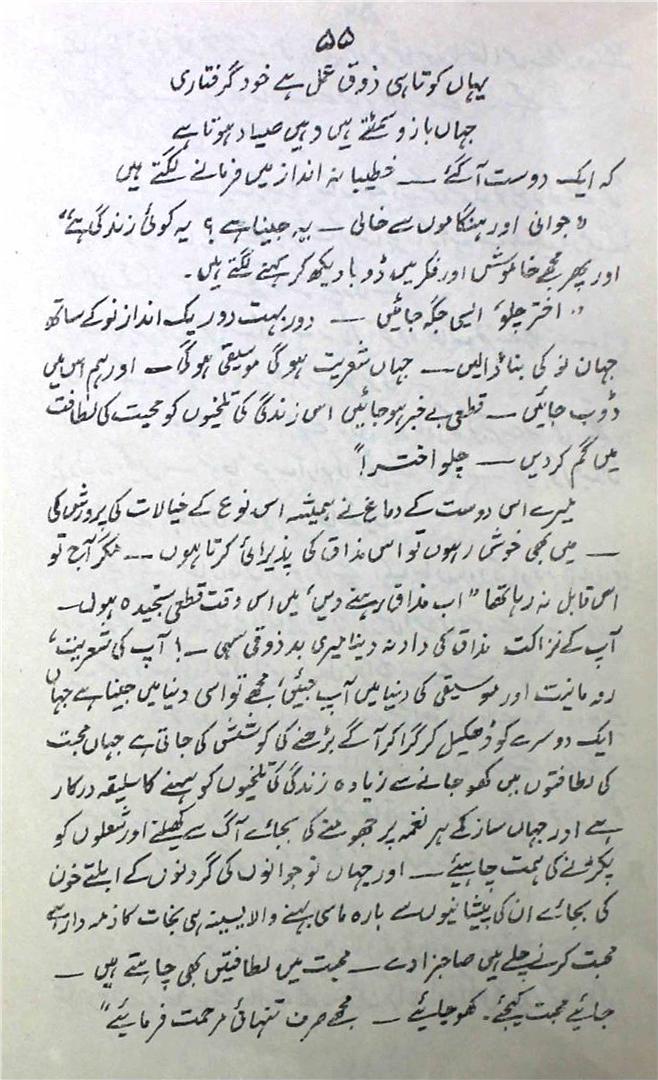 ۵۵
یہاں کوتاہی ذوق عمل ہے خود گرفتاری
جہاں بازو سمٹتے ہیں وہیں صیاد ہوتا ہے
کہ ایک دوست آگئے — خطیبانہ انداز میں فرمانے لگتے ہیں
"جوانی اور ہنگاموں سے خالی — یہ جینا ہے؟ یہ کوئی زندگی ہے"
اور پھر مجھے خاموش اور فکر میں ڈوبا دیکھ کر کہنے لگتے ہیں۔
"اختر چلو، ایسی جگہ جائیں — دور بہت دور یک انداز نو کے ساتھ
جہان نو کی بنا ڈالیں — جہاں شعریت ہوگی موسیقی ہوگی — اور ہم اس میں
ڈوب جائیں — قطعی بے خبر ہوجائیں اس زندگی کی تلخیوں کو محبت کی لطافت
میں گم کردیں — چلو اختر!"
میرے اس دوست کے دماغ نے ہمیشہ اس نوع کے خیالات کی پرورش کی
— میں بھی خوش رہوں تو اس مذاق کی پذیرائی کرتا ہوں — مگر آج تو
اس قابل نہ رہا تھا "اب مذاق رہنے دیں، میں اس وقت قطعی سنجیدہ ہوں —
آپ کے نزاکت مذاق کی داد نہ دینا میری بد ذوقی سہی —! آپ کی شعریت،
رومانیت اور موسیقی کی دنیا میں آپ جیئیں، مجھے تو اسی دنیا میں جینا ہے جہاں
ایک دوسرے کو ڈھکیل کر گرا کر آگے بڑھنے کی کوشش کی جاتی ہے جہاں محبت
کی لطافتوں میں کھو جانے سے زیادہ زندگی کی تلخیوں کو سہنے کا سلیقہ درکار
ہے اور جہاں ساز کے ہر نغمہ پر جھومنے کی بجائے آگ سے کھیلنے اور شعلوں کو
پکڑنے کی ہمت چاہیئے — اور جہاں نوجوانوں کی گردنوں کے ابلتے خون
کی بجائے ان کی پیشانیوں سے بارہ ماسی بہنے والا پسینہ ہی نجات کا ذمہ دار ہے
محبت کرنے چلے ہیں صاحبزادے — محبت میں لطافتیں بھی چاہتے ہیں —
جائیے محبت کیجئے۔ کھو جائیے — مجھے صرف تنہائی مرحمت فرمایئے"